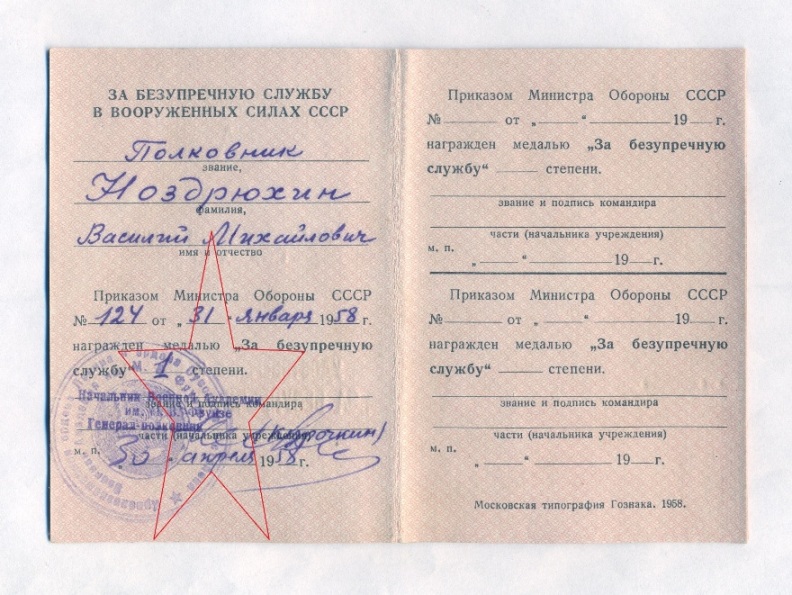 ЗА БЕЗУПРЕЧНУЮ СЛУЖБУ
В ВООРУЖЕННЫХ СИЛАХ СССР
Полковник
звание,
Ноздрюхин
фамилия,
Василий Михайлович
имя и отчество
Приказом Министра Обороны СССР
№ 124 от „31“ января 1958 г.
награжден медалью „За безупречную
службу“ 1 степени.
звание и подпись командира
Начальник Военной Академии
им. М. В. Фрунзе
Генерал-полковник
(Курочкин)
части (начальника учреждения)
м. п. „30“ апреля 1958 г.
Приказом Министра Обороны СССР
№ от „ “ 19 г.
награжден медалью „За безупречную
службу“ степени.
звание и подпись командира
части (начальника учреждения)
м. п.
„ “ 19 г.
Приказом Министра Обороны СССР
№ от „ “ 19 г.
награжден медалью „За безупречную
службу“ степени.
звание и подпись командира
части (начальника учреждения)
м. п.
„ “ 19 г.
Московская типография Гознака. 1958.